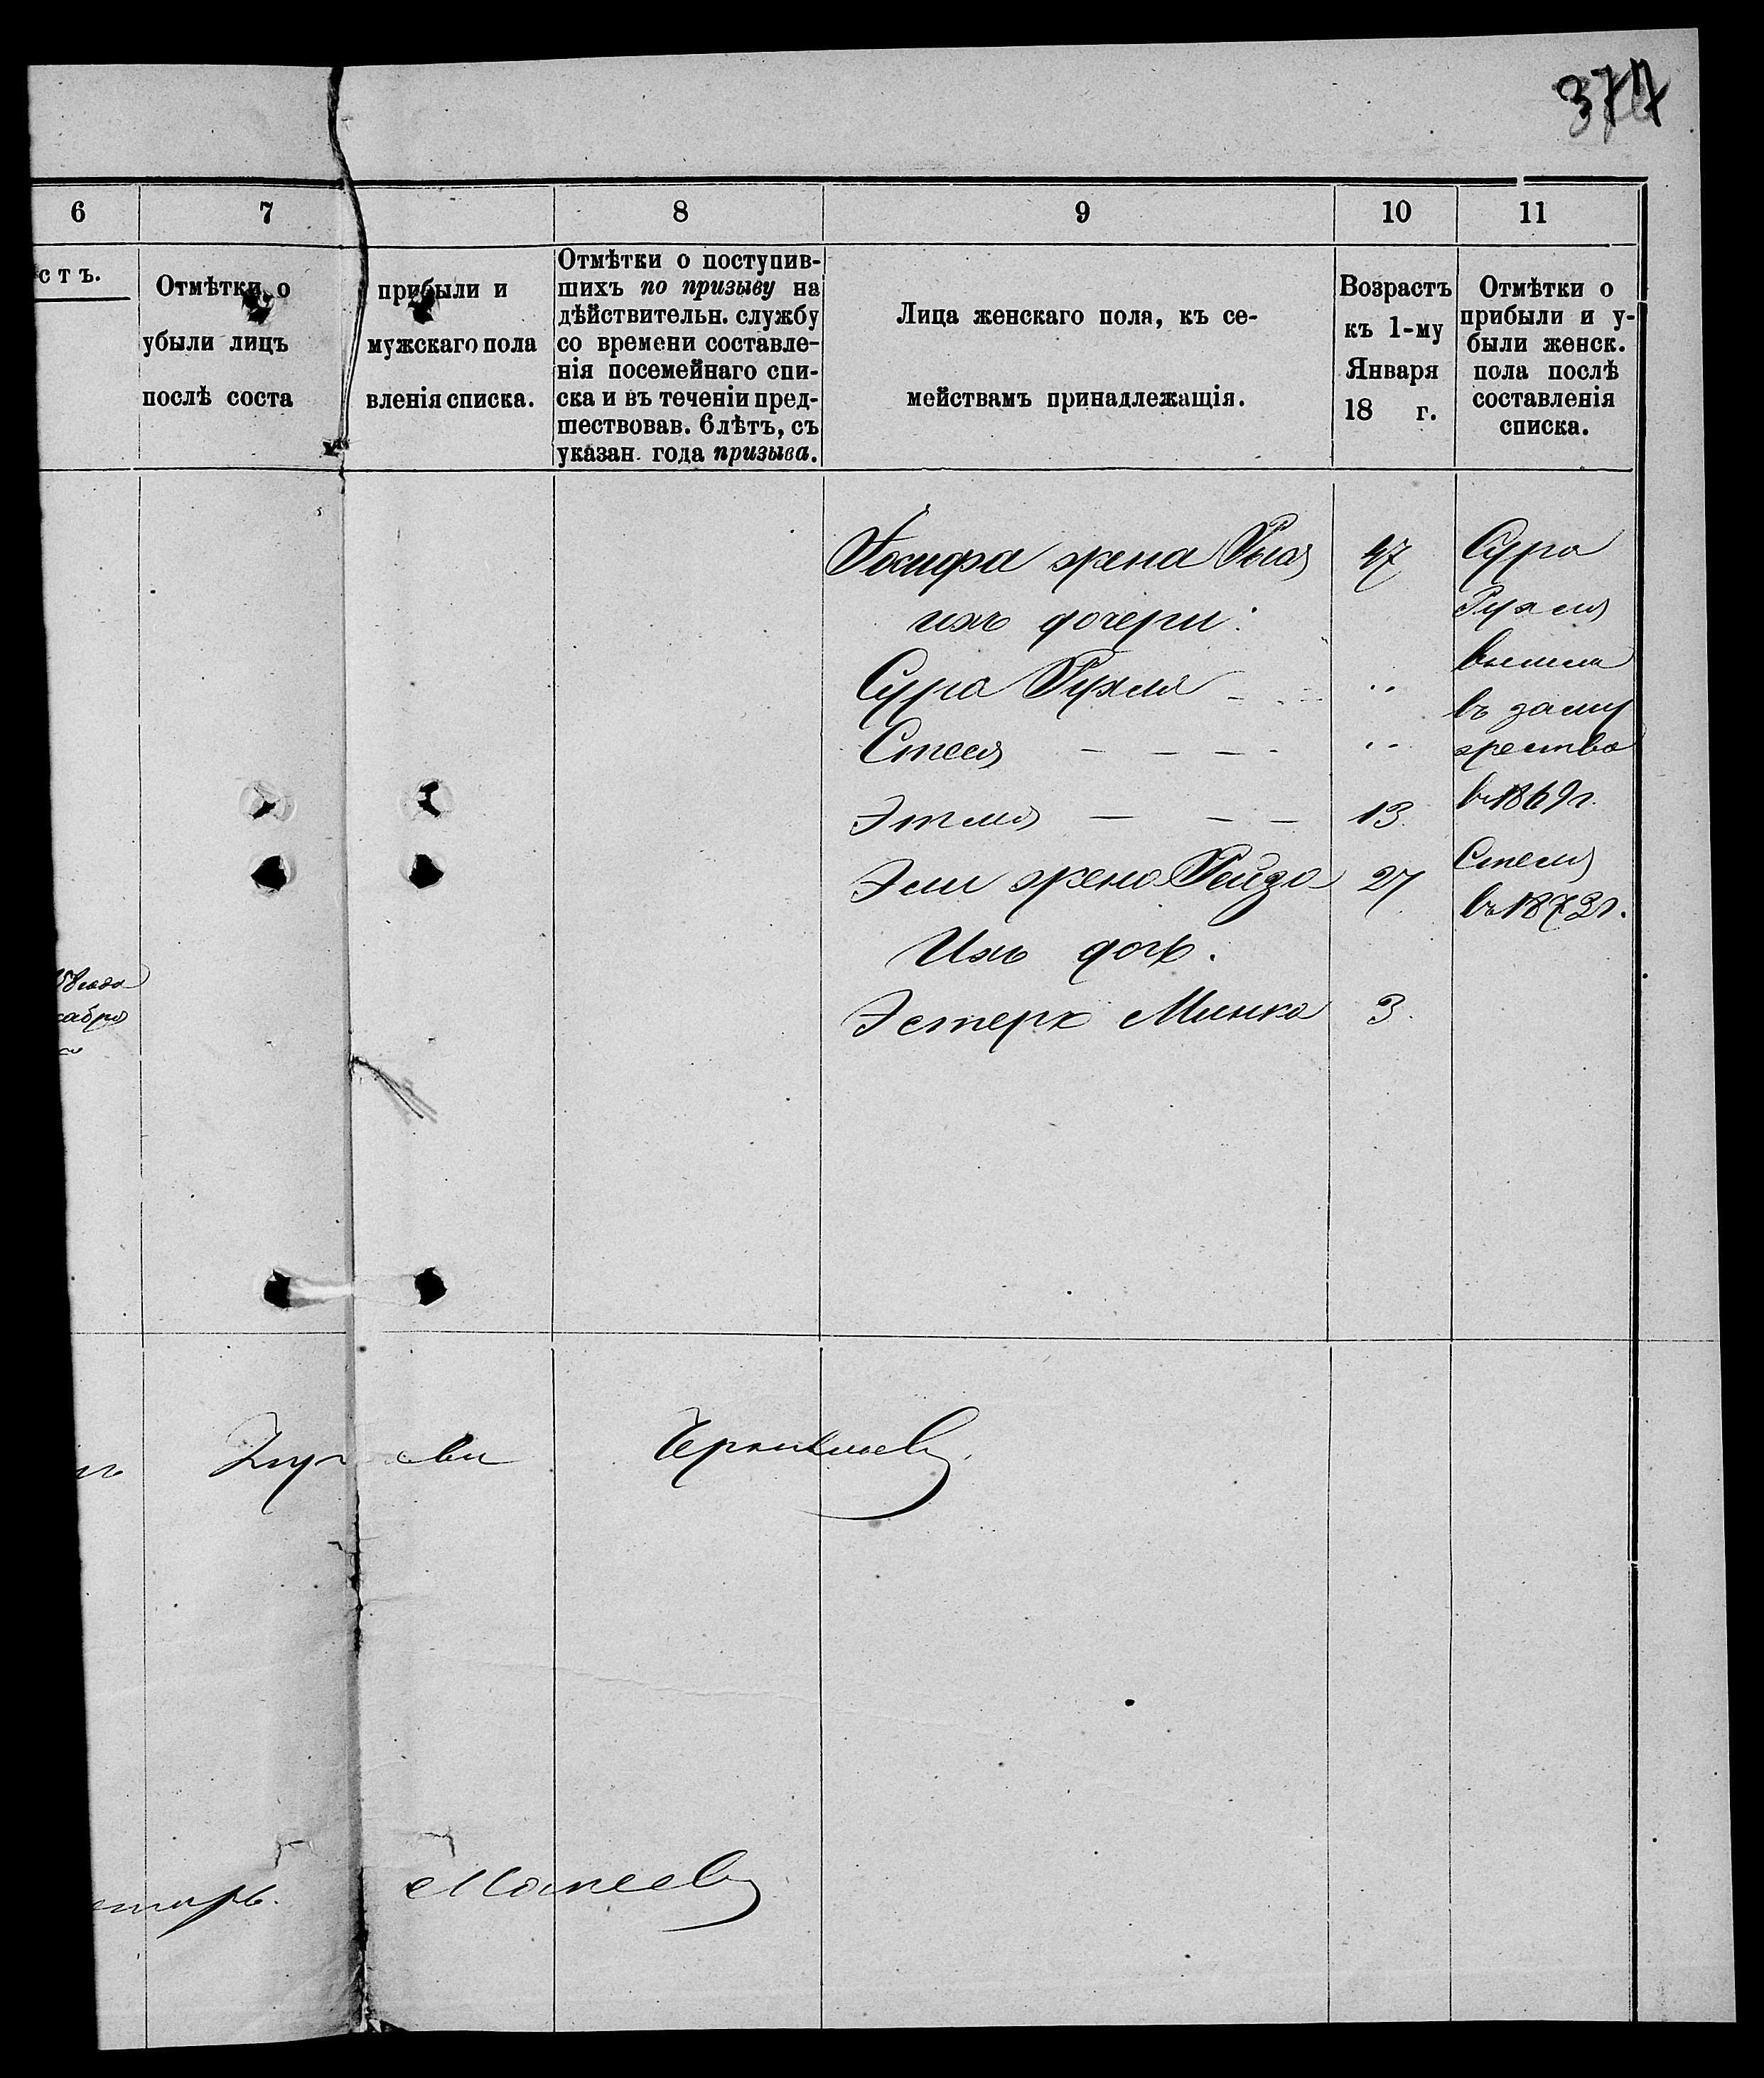 377
6 7 8 9 10 11
стъ.
Отмѣтки о прибыли и
убыли лицъ мужскаго пола
послѣ соста вленія списка.
Отмѣтки о поступив-
шихъ по призыву на
дѣйствительн. службу
со времени составле-
нія посемейнаго спи-
ска и въ теченіи пред-
шествовав. 6 лѣтъ, съ
указан. года призыва.
Лица женскаго пола, къ се-
мействамъ принадлежащія.
Возрастъ
къ 1-му
Января
18 г.
Отмѣтки о
прибыли и у-
были женск.
пола послѣ
составленія
списка.
Іосифа жена 47
ихъ дочери:
Сура Рухля - - - "
Стеся — — — - "
Этля — — — 13.
Эли жена Рейза 27
Ихъ дочь.
Эстерх Минка 3.
Сура
Рухля
вышла
въ заму
жество
въ 1869 г.
въ 1873 г.
58 года
кабря
Моисеевъ